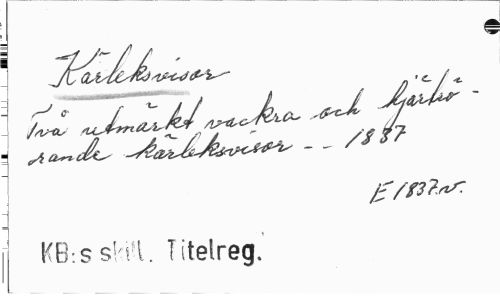 Kärleksvisor
Två utmärkt vackra och hjärtrö-
rande kärleksvisor -- 1837
E 1837.v.
KB:s skill. Titelreg.